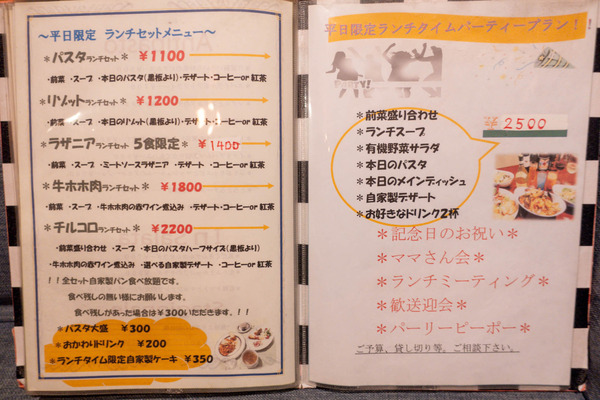 ～平日限定 ランチセットメニュー～
＊パスタランチセット＊ ￥1100
・前菜 ・スープ ・本日のパスタ(黒板より)・デザート・コーヒーor 紅茶
＊リゾットランチセット＊ ￥1200
・前菜 ・スープ ・本日のリゾット(黒板より)・デザート・コーヒーor 紅茶
＊ラザニアランチセット 5食限定＊ ￥1400
・前菜 ・スープ ・ミートソースラザニア ・デザート ・コーヒーor 紅茶
＊牛ホホ肉ランチセット＊ ￥1800
・前菜 ・スープ ・牛ホホ肉の赤ワイン煮込み ・デザート・コーヒーor 紅茶
＊チルコロランチセット＊ ￥2200
・前菜盛り合わせ ・スープ ・本日のパスタハーフサイズ(黒板より)
・牛ホホ肉の赤ワイン煮込み ・選べる自家製デザート ・コーヒーor 紅茶
！！全セット自家製パン食べ放題です。
食べ残しの無い様にお願いします。
食べ残しがあった場合は￥300いただきます。！！
＊パスタ大盛 ￥300
＊おかわりドリンク ￥200
＊ランチタイム限定自家製ケーキ ￥350
平日限定ランチタイムパーティープラン！！
PARTY!
＊前菜盛り合わせ
＊ランチスープ
＊有機野菜サラダ
＊本日のパスタ
＊本日のメインディッシュ
＊自家製デザート
＊お好きなドリンク2杯
2500
＊記念日のお祝い＊
＊ママさん会＊
＊ランチミーティング＊
＊歓送迎会＊
＊パーリーピーポー＊
ご予算、貸し切り等。ご相談下さい。